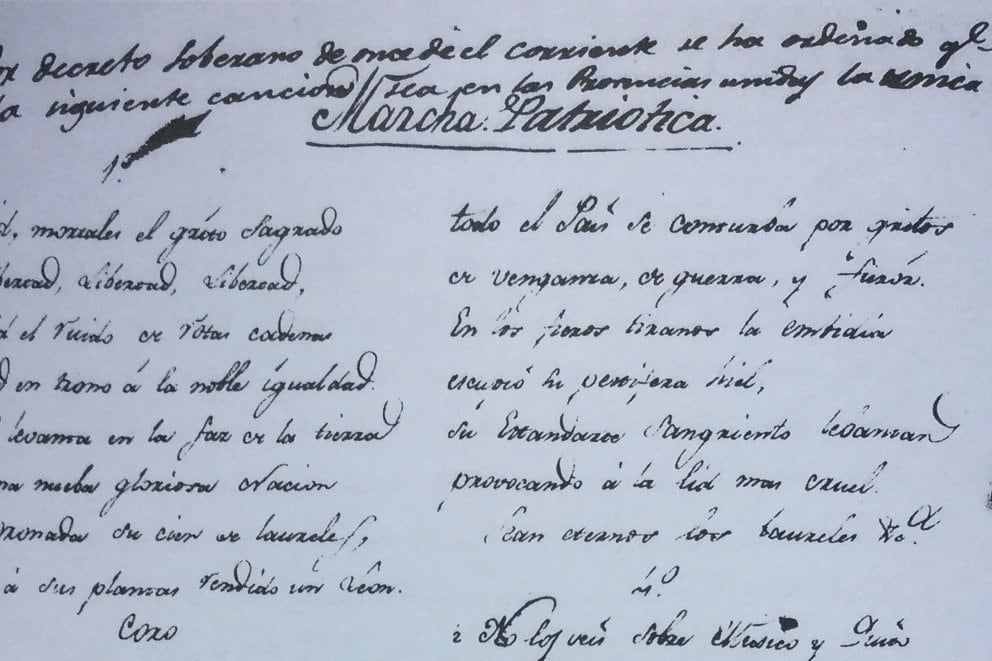 decreto soberano de once de el corriente se ha ordenado qe
la siguiente cancion sea en las Provincias unidas la unica
Marcha Patriotica.
1º
d, mortales el grito sagrado
bertad, Libertad, Libertad,
d el ruido de rotas cadenas
d en trono á la noble igualdad.
levanta en la faz de la tierra
na nueba gloriosa Nacion
oronada su cien de laureles,
á sus plantas rendido un Léon.
Coro
todo el País se conturba por gritos
de venganza, de guerra, y furór.
En los fieros tiranos la embidia
escupió su pestifera hiel,
sú Estandarte sangriento levantan
provocando á la lid mas cruel.
Sean eternos los Laureles &ª
4º
¿ No los veis sobre Mexico y Quito